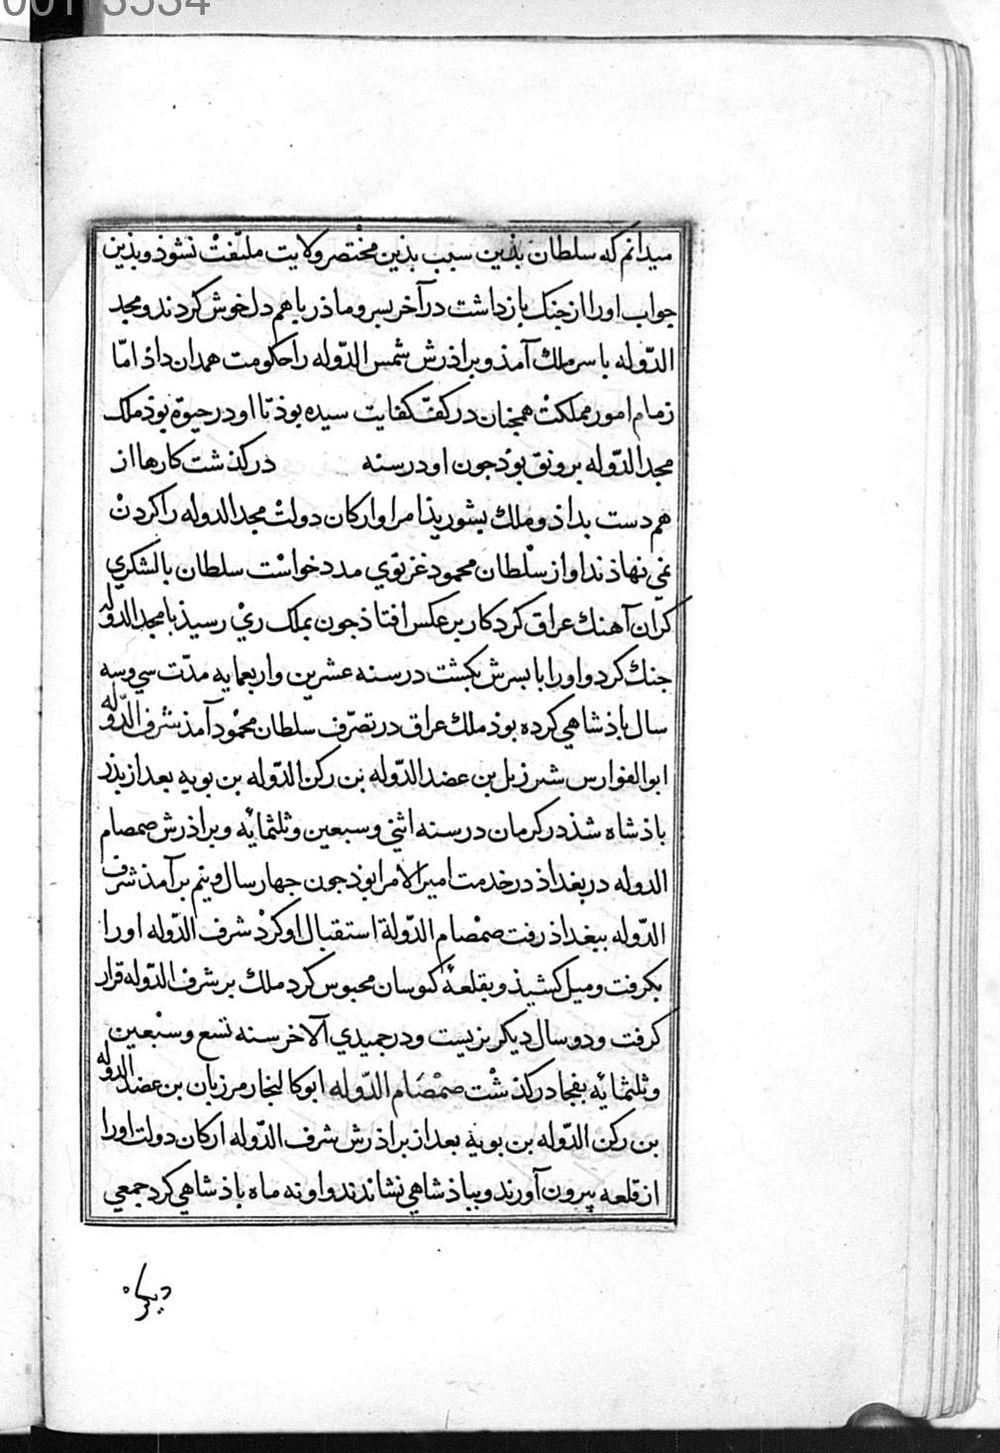 0013534
میدانم که سلطان بذین سبب بذین مختصر ولایت ملتفت نشوذ و بذین
جواب او را از جنک بازداشت در آخر بسر و ماذر باهم دلخوش کردند و مجد
الدّوله با سر ملک آمذ و براذرش شمس الدّوله را حکومت همدان داذ امّا
زمام امور مملکت همجنان در کفّ کفایت سیده بوذ تا او در حیوة بوذ ملک
مجد الدّوله برونق بوذ جون او در سنه درکذشت کارها از
هم دست بداذ و ملک بشوریذ امرا و ارکان دولت مجد الدوله را کردن
نمی نهاذند او از سلطان محمود غزنوي مدد خواست سلطان با لشکري
کران آهنک عراق کرد کار بر عکس افتاذ جون بملک ري رسیذ با مجد الدوله
جنک کرد و او را با بسرش بکشت در سنه عشرین و اربعمایه مدّت سي و سه
سال باذشاهي کرده بوذ ملک عراق در تصرّف سلطان محمود آمذ شرف الدّوله
ابو الفوارس شیرزیل بن عضد الدّوله بن رکن الدّوله بن بویه بعد از بذر
باذشاه شذ در کرمان در سنه اثني و سبعین و ثلثمائه و براذرش صمصام
الدوله در بغداذ در خدمت امیر الامرا بوذ جون جهار سال و نیم برآمذ شرف
الدّوله ببغداذ رفت صمصام الدّولة استقبال او کرد شرف الدّوله او را
بکرفت و میل کشیذ و بقلعهٔ کوسان محبوس کرد ملک بر شرف الدّوله قرار
کرفت و دو سال دیکر بزیست و در جمیدي الآخر سنه تسع و سبعین
و ثلثمائه بفجا درکذشت صمصام الدّوله ابو کالنجار مرزبان بن عضد الدوله
بن رکن الدّوله بن بویه بعد از براذرش شرف الدّوله ارکان دولت او را
از قلعه بیرون آورند و بباذشاهي نشاندند و او نه ماه باذشاهي کرد جمعي
دیکر